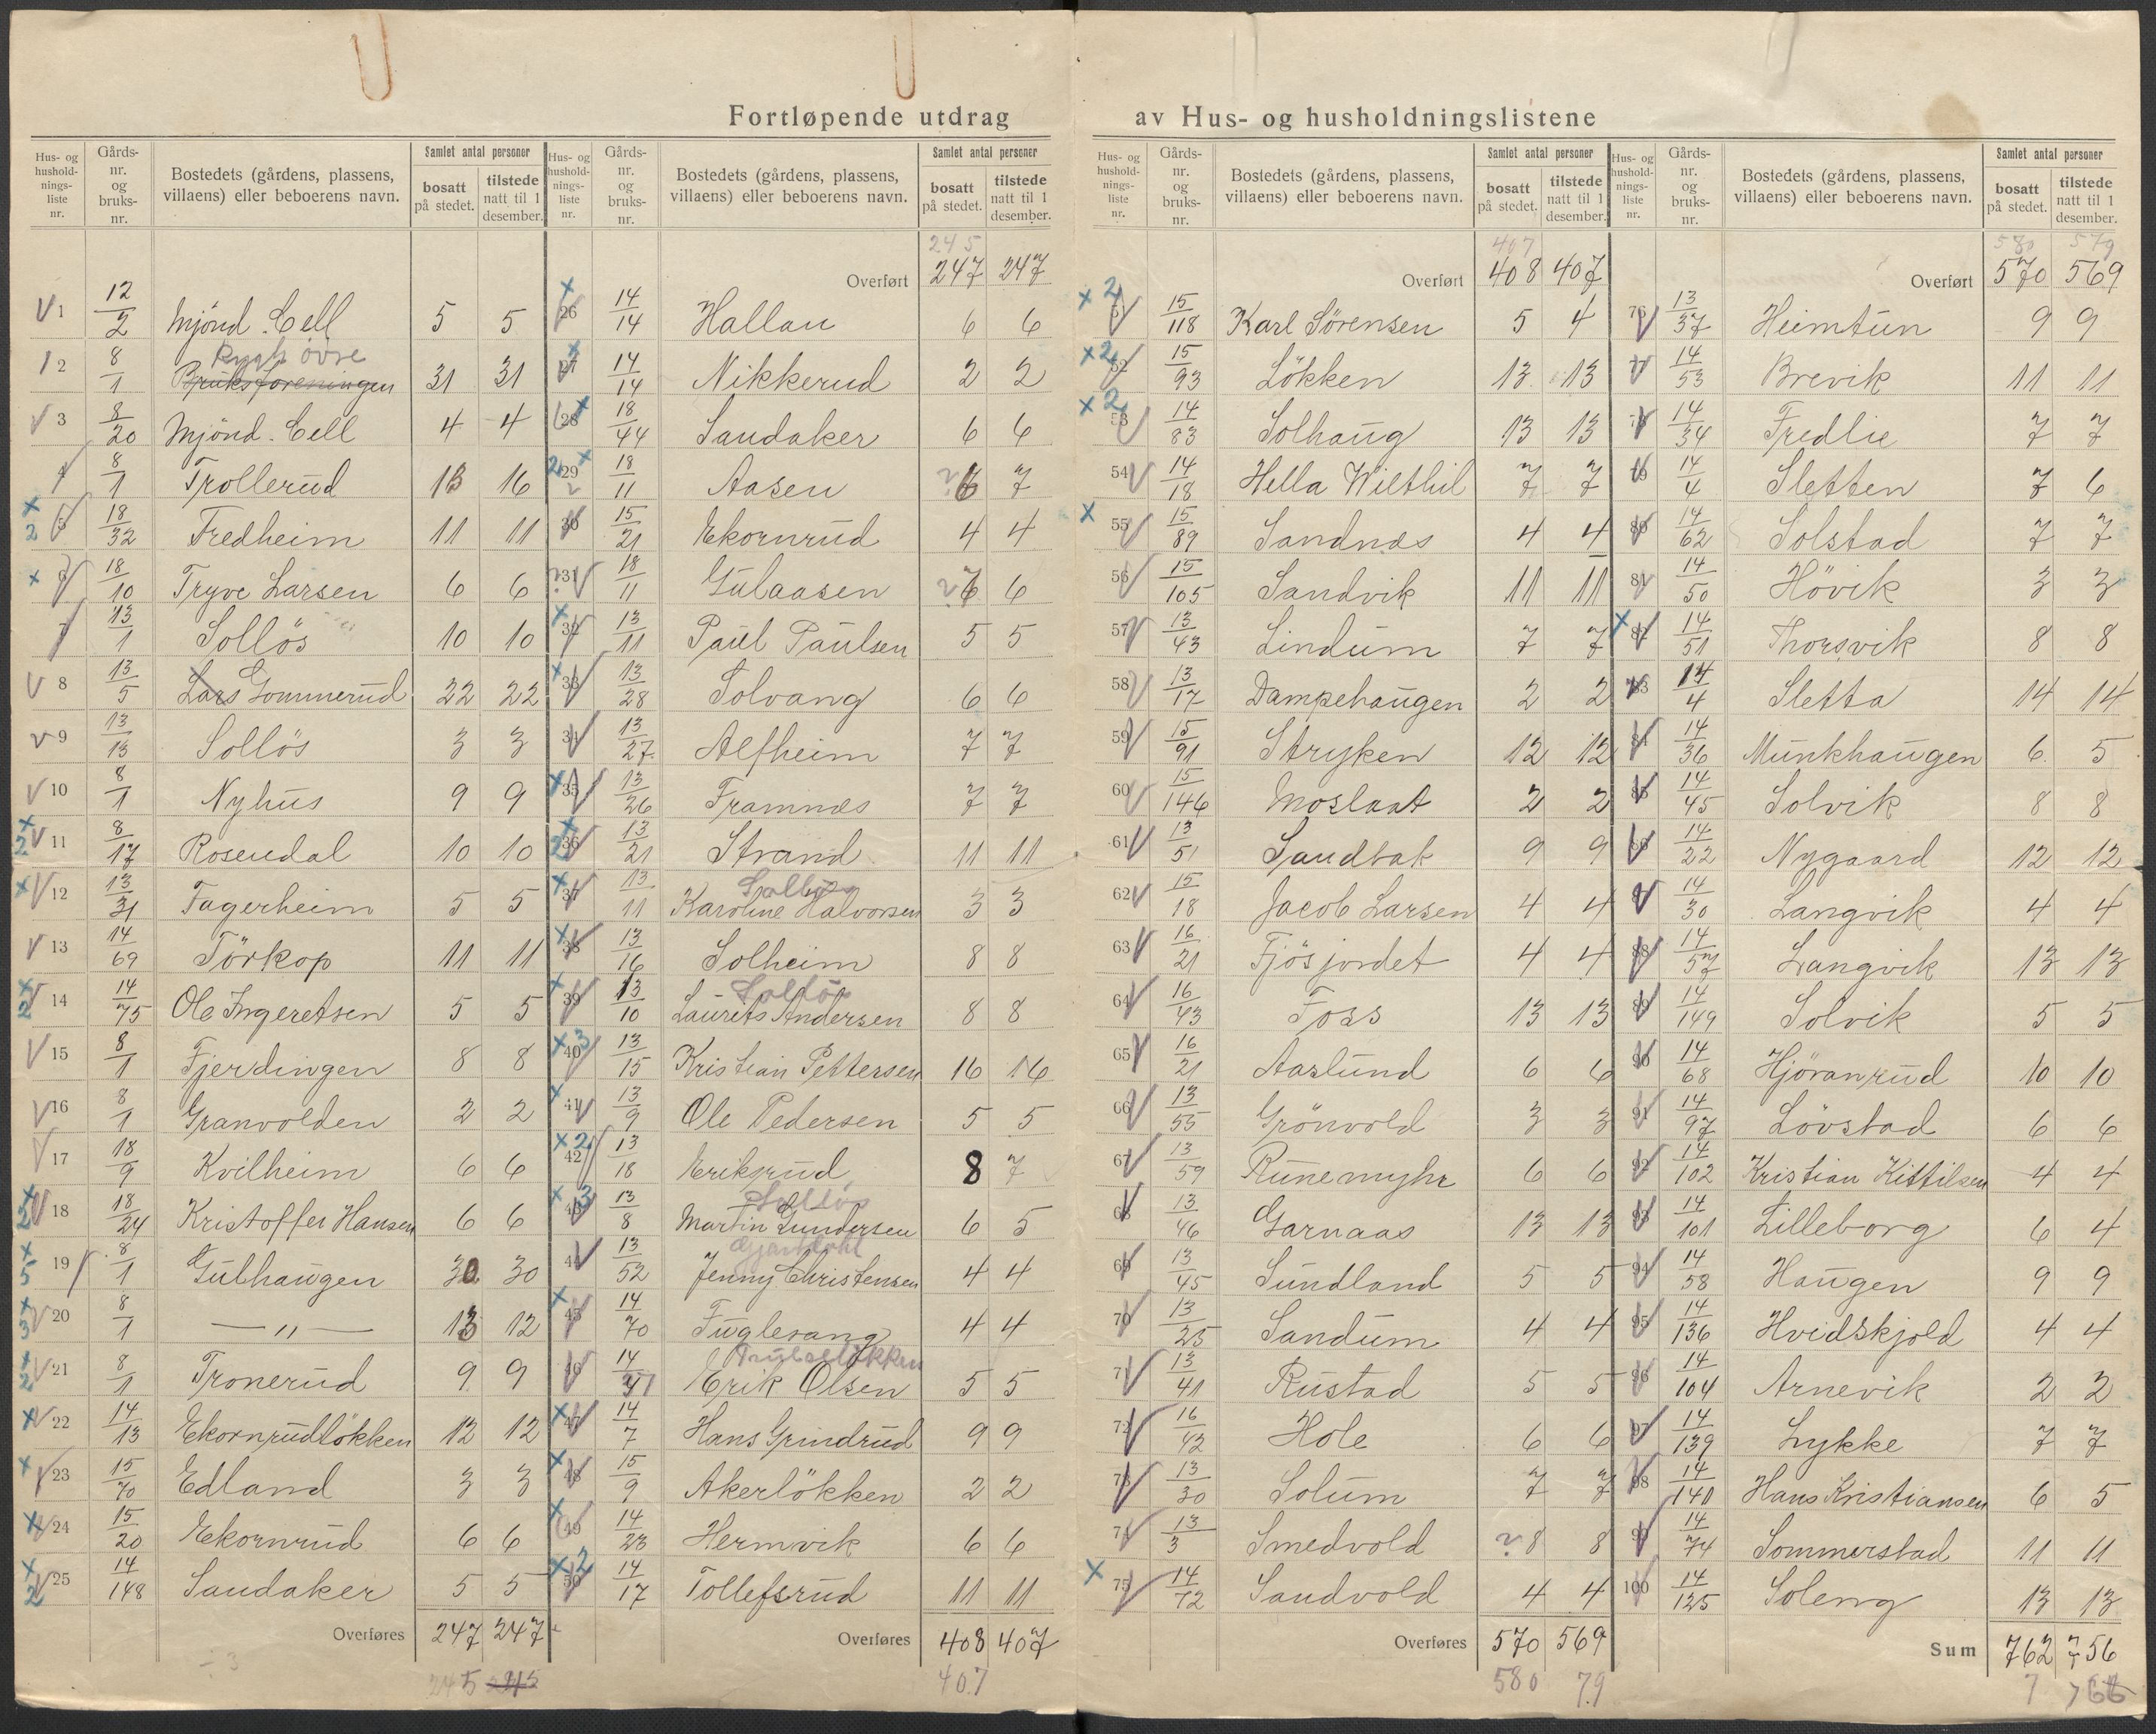 Fortløpende utdrag av Hus- og husholdningslistene
Hus- og hushold- nings- liste nr. | Gårds- nr. og bruks- nr. | Bostedets (gårdens, plassens, villaens) eller beboerens navn. | Samlet antal personer | bosatt på stedet. | tilstede natt til 1 desember.
1 12/2 Mjönd. Cell 5 5
2 8/1 Bruksforeningen øvre 31 31
3 8/20 Mjönd. Cell 4 4
4 8/1 Trollerud 13 16
5 18/32 Fredheim 11 11
6 18/10 Tryve Larsen 6 6
7 13/1 Sollös 10 10
8 13/5 Lars Gommerud 22 22
9 13/13 Sollös 3 3
10 8/1 Nyhus 9 9
11 8/17 Rosendal 10 10
12 13/31 Fagerheim 5 5
13 14/69 Törkop 11 11
14 14/75 Ole Ingeretsen 5 5
15 8/1 Fjerdingen 8 8
16 8/1 Granvolden 2 2
17 18/9 Kvilheim 6 6
18 18/24 Kristoffer Hansen 6 6
19 8/1 Gulhaugen 30 30
20 8/1 — " — 13 12
21 8/1 Tronerud 9 9
22 14/13 Ekornrudlökken 12 12
23 15/70 Edland 3 3
24 15/20 Ekornrud 6 6
25 14/148 Sandaker 5 5
Overføres 247 247
245 245
Hus- og hushold- nings- liste nr. | Gårds- nr. og bruks- nr. | Bostedets (gårdens, plassens, villaens) eller beboerens navn. | Samlet antal personer | bosatt på stedet. | tilstede natt til 1 desember.
245
Overført 247 247
26 14/14 Hallan 6 6
27 14/14 Nikkerud 2 2
28 18/44 Sandaker 6 6
29 18/11 Aasen 6 7
30 15/21 Ekornrud 4 4
31 18/11 Gulaasen 6 6
32 13/11 Paul Paulsen 5 5
33 13/28 Solvang 6 6
34 13/27 Alfheim 7 7
35 13/26 Framnæs 7 7
36 13/21 Strand 11 11
37 13/11 Sollös Karoline Halvorsen 3 3
38 13/16 Solheim 8 8
39 13/10 Sollös Laurits Andersen 8 8
40 13/15 Kristian Pettersen 16 16
41 13/9 Ole Pedersen 5 5
42 13/18 Eriksrud 8 7
43 13/8 Sollös Martin Gundersen 6 5
44 13/52 Jenny Christensen 4 4
45 14/70 Fuglesang 4 4
46 14/31 Erik Olsen 5 5
47 14/7 Hans Grindrud 9 9
48 15/9 Akerlökken 2 2
49 14/23 Hermvik 6 6
50 14/17 Tollefsrud 11 11
Overføres 408 407
407
Hus- og hushold- nings- liste nr. | Gårds- nr. og bruks- nr. | Bostedets (gårdens, plassens, villaens) eller beboerens navn. | Samlet antal personer | bosatt på stedet. | tilstede natt til 1 desember.
407
Overført 408 407
51 15/118 Karl Sörensen 5 4
52 15/93 Lökken 13 13
53 14/83 Solhaug 13 13
54 14/18 Hella Wilthil 7 7
55 15/89 Sandnæs 4 4
56 15/105 Sandvik 11 11
57 13/43 Lindum 7 7
58 13/17 Dampehaugen 2 2
59 15/91 Stryken 12 12
60 15/146 Moslaat 2 2
61 13/51 Sandbak 9 9
62 15/18 Jacob Larsen 4 4
63 16/21 Fjösjordet 4 4
64 16/43 Foss 13 13
65 16/21 Aaslund 6 6
66 13/55 Grönvold 3 3
67 13/59 Runemyhr 6 6
68 13/46 Garnaas 13 13
69 13/45 Sundland 5 5
70 13/25 Sandum 4 4
71 13/41 Rustad 5 5
72 16/42 Hole 6 6
73 13/30 Solum 7 7
74 13/3 Smedvold ? 8 8
75 14/72 Sandvold 4 4
Overføres 570 569
580 79
Hus- og hushold- nings- liste nr. | Gårds- nr. og bruks- nr. | Bostedets (gårdens, plassens, villaens) eller beboerens navn. | Samlet antal personer | bosatt på stedet. | tilstede natt til 1 desember.
580 579
Overført 570 569
76 13/37 Heimtun 9 9
77 14/53 Brevik 11 11
78 14/34 Fredlie 7 7
79 14/4 Sletten 7 6
80 14/62 Solstad 7 7
81 14/50 Hövik 3 3
82 14/51 Thorsvik 8 8
83 14/4 Sletta 14 14
84 14/36 Munkhaugen 6 5
85 14/45 Solvik 8 8
86 14/22 Nygaard 12 12
87 14/30 Langvik 4 4
88 14/57 Langvik 13 13
89 14/149 Solvik 5 5
90 14/68 Hjöranrud 10 10
91 14/97 Lövstad 6 6
92 14/102 Kristian Kittilsen 4 4
93 14/101 Lilleborg 6 4
94 14/58 Haugen 9 9
95 14/136 Hvidskjold 4 4
96 14/104 Arnevik 2 2
97 14/139 Lykke 7 7
98 14/140 Hans Kristiansen 6 5
99 14/74 Sommerstad 11 11
100 14/125 Soleng 13 13
Sum 762 756
7 766